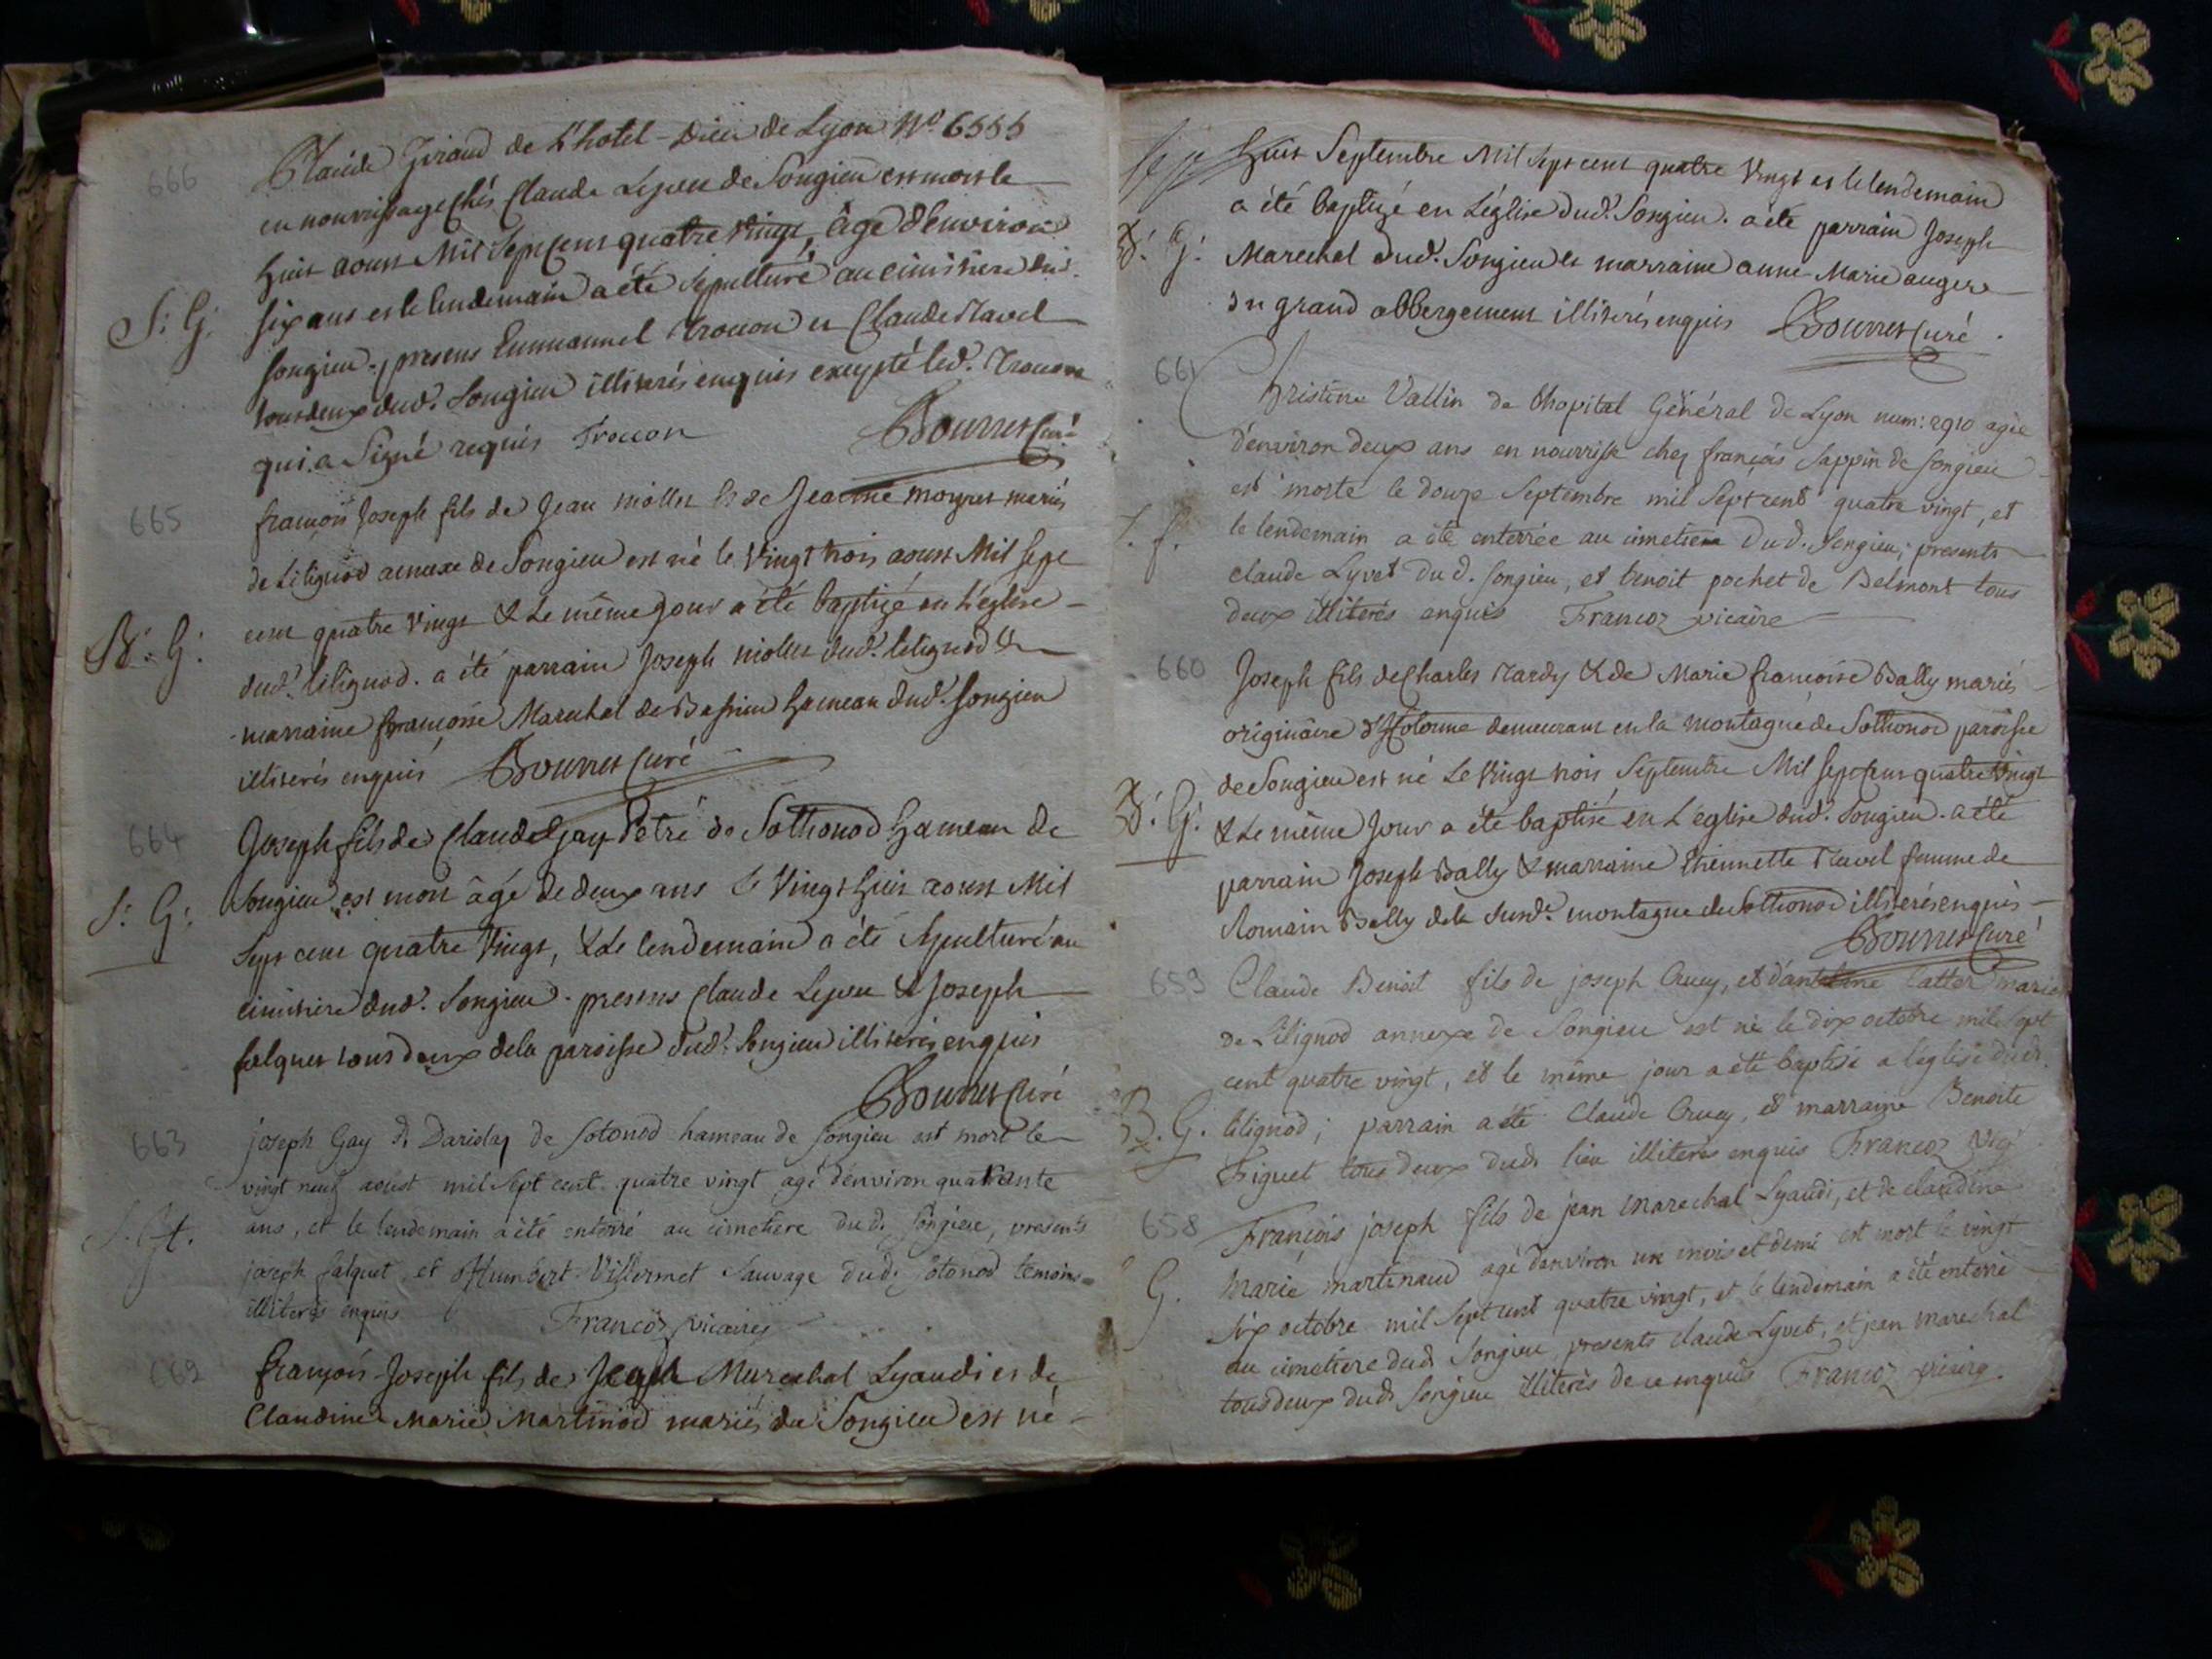 666 Claude Giraud de L'hotel-Dieu de Lyon No. 6555
en nourrissage chés Claude Lyvet de Songieu est mort le
huit aoust Mil Sept Cent quatre vingt, âgé d'environ
S: G: six ans et le lendemain a été sepulturé au cimitiere dud.
songieu. presens Emmanuel Trocon et Claude Ravel
tous deux dud. Songieu illiterés enquis excepté led. Trocon
qui a Signé requis Trocon Bourret Curé
665 françois Joseph fils de Jean miollet et de Jeanne moyret mariés
de Lilignod annexe de Songieu est né le vingt trois aoust Mil sept
B: G: cent quatre vingt & Le même Jour a été baptizé en L'église
dud. lilignod. a été parrain Joseph miollet dud. lilignod &
marraine françoise Marechal de Bassieu hameau dud. songieu
illiterés enquis Bourret Curé
664 Joseph fils de Claude Gay Petré de Sothonod hameau de
S: G: Songieu est mort âgé de deux ans le vingt huit aoust Mil
Sept cent quatre vingt, & Le lendemain a été sepulturé au
cimitiere dud. Songieu. presens Claude Lyvet & Joseph
falquet tous deux de la paroisse dud. Songieu illiterés enquis
Bourret Curé
663 joseph Gay de sotonod hameau de songieu est mort le
vingt neuf aoust mil sept cent quatre vingt agé d'environ quarante
ans, et le lendemain a été enterré au cimetiere dud. songieu, presents
joseph falquet et humbert Villermet Sauvage dud. sotonod temoins
illiterés enquis Francoz vicaire
662 françois-Joseph fils de Marechal Lyaudi et de
Claudine Marie Martinod mariés de Songieu est né
huit Septembre Mil Sept cent quatre vingt et le lendemain
a été baptizé en L'église dud. Songieu. a été parrain Joseph
B: G: Marechal dud. Songieu et marraine anne-Marie augere
du grand abbergement illiterés enquis Bourret Curé
661 Christine Vallin de l'hopital Général de Lyon num: 2910 agée
d'environ deux ans en nourrisse chez françois Sappin de songieu
est morte le douze septembre mil sept cent quatre vingt, et
le lendemain a été enterrée au cimetiere dud. songieu; presents
claude Lyvet dud. songieu, et benoit pochet de Belmont tous
deux illiterés enquis Francoz vicaire
660 Joseph fils de Charles Tardy & de Marie françoise Bally mariés
originaire d'Hotonne demeurant en la montagne de Sothonod paroisse
de Songieu est né Le vingt trois Septembre Mil sept Cent quatre vingt
B: G: & Le même Jour a été baptisé en L'église dud. Songieu. a été
parrain Joseph Bally & marraine Etiennette Ravel femme de
Romain Bally de la susd.e montagne de Sothonod illiterés enquis
Bourret Curé
659 Claude Benoit fils de joseph Cruey, et d'antelme latter mariés
de Lilignod annexe de Songieu est né le dix octobre mil sept
cent quatre vingt, et le même jour a été baptisé a l'eglise dud.
B. G. lilignod; parrain a été Claude Cruey, et marraine Benoite
Figuet tous deux dud. lieu illiterés enquis Francoz vic.
658 François joseph fils de jean marechal Lyaudi, et de claudine
G. Marie martinaud agé d'environ un mois et demi est mort le vingt
six octobre mil sept cent quatre vingt, et le lendemain a été enterré
au cimetiere dud. Songieu, presents claude Lyvet, et jean marechal
tous deux dud. Songieu illiterés de ce enquis Francoz vicaire.